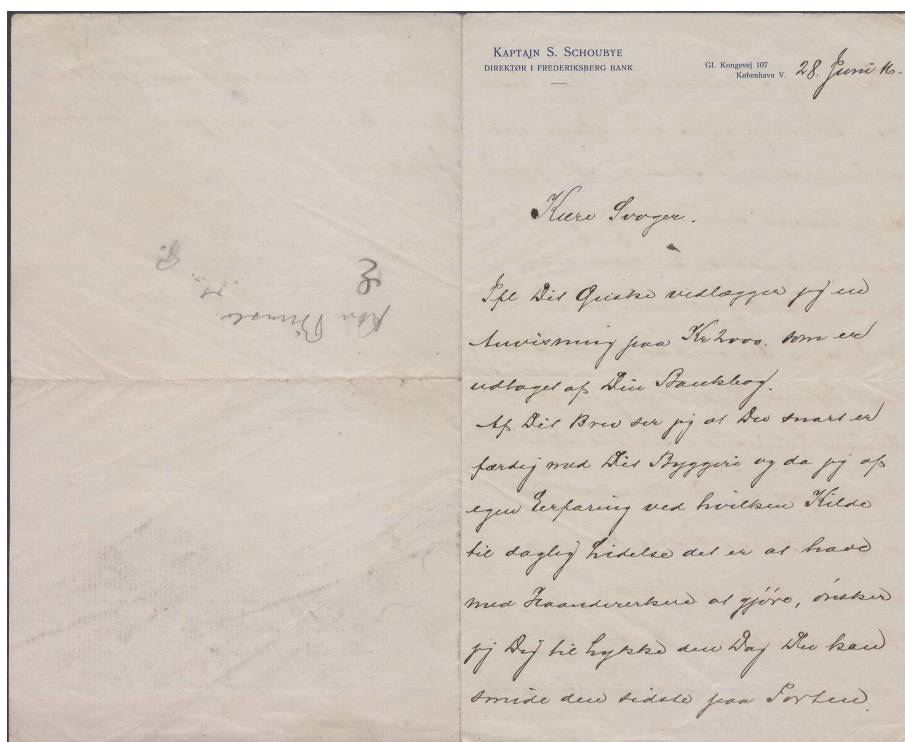 KAPTAJN S. SCHOUBYE
DIREKTØR I FREDERIKSBERG BANK
Gl. Kongevej 107
København V.
28. Juni 16.
Kære Svoger.
Ifl Dit Ønske vedlægger jeg en
Anvisning paa Kr 2000. som er
udtaget af Din Bankbog.
Af Dit Brev ser jeg at Du snart er
færdig med Dit Byggeri og da jeg af
egen Erfaring ved hvilken Kilde
til daglig Lidelse det er at have
med Haandverkere at gjöre, önsker
jeg Dig til Lykke den Dag Du kan
smide den sidste paa Porten.